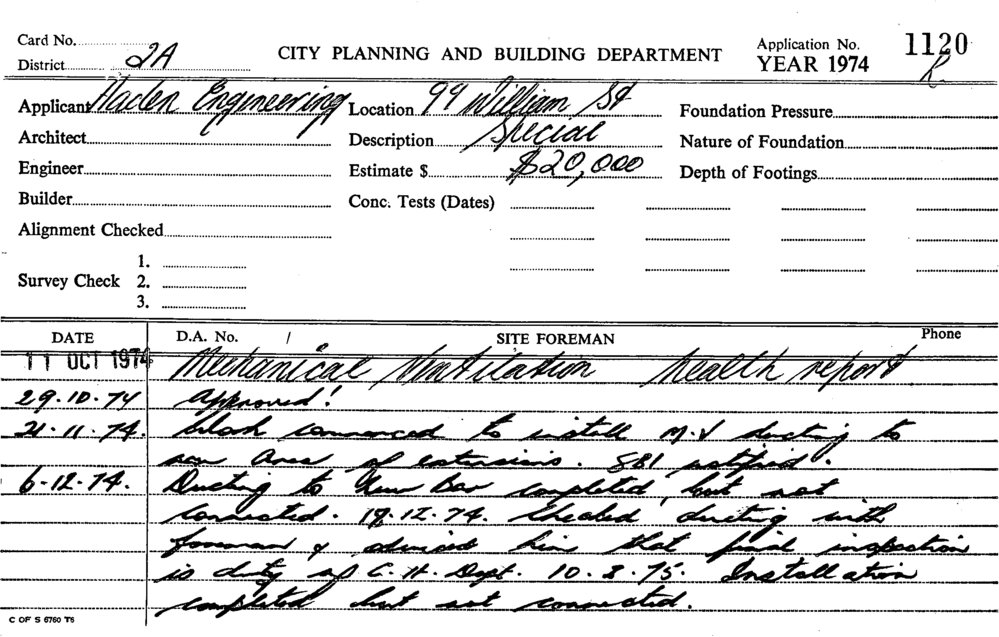 Card No.
District 2A
CITY PLANNING AND BUILDING DEPARTMENT
Application No. 1120
YEAR 1974 R.
Applicant Haden Engineering Location 99 William St Foundation Pressure
Architect Description Special Nature of Foundation
Engineer Estimate $ $20,000 Depth of Footings
Builder Conc. Tests (Dates)
Alignment Checked
1.
Survey Check 2.
3.
DATE D.A. No. / SITE FOREMAN Phone
11 OCT 1974 Mechanical Ventilation health report
29.10.74 Approved!
21.11.74. Work commenced to install M.V ducting to
new area of extensions. SBI notified.
6.12.74. Ducting to New Bar completed, but not
connected. 19.12.74. Checked ducting with
foreman & advised him that final inspection
is duty of C.H. Dept. 10.3.75. Installation
completed but not connected.
C OF S 6760 T6